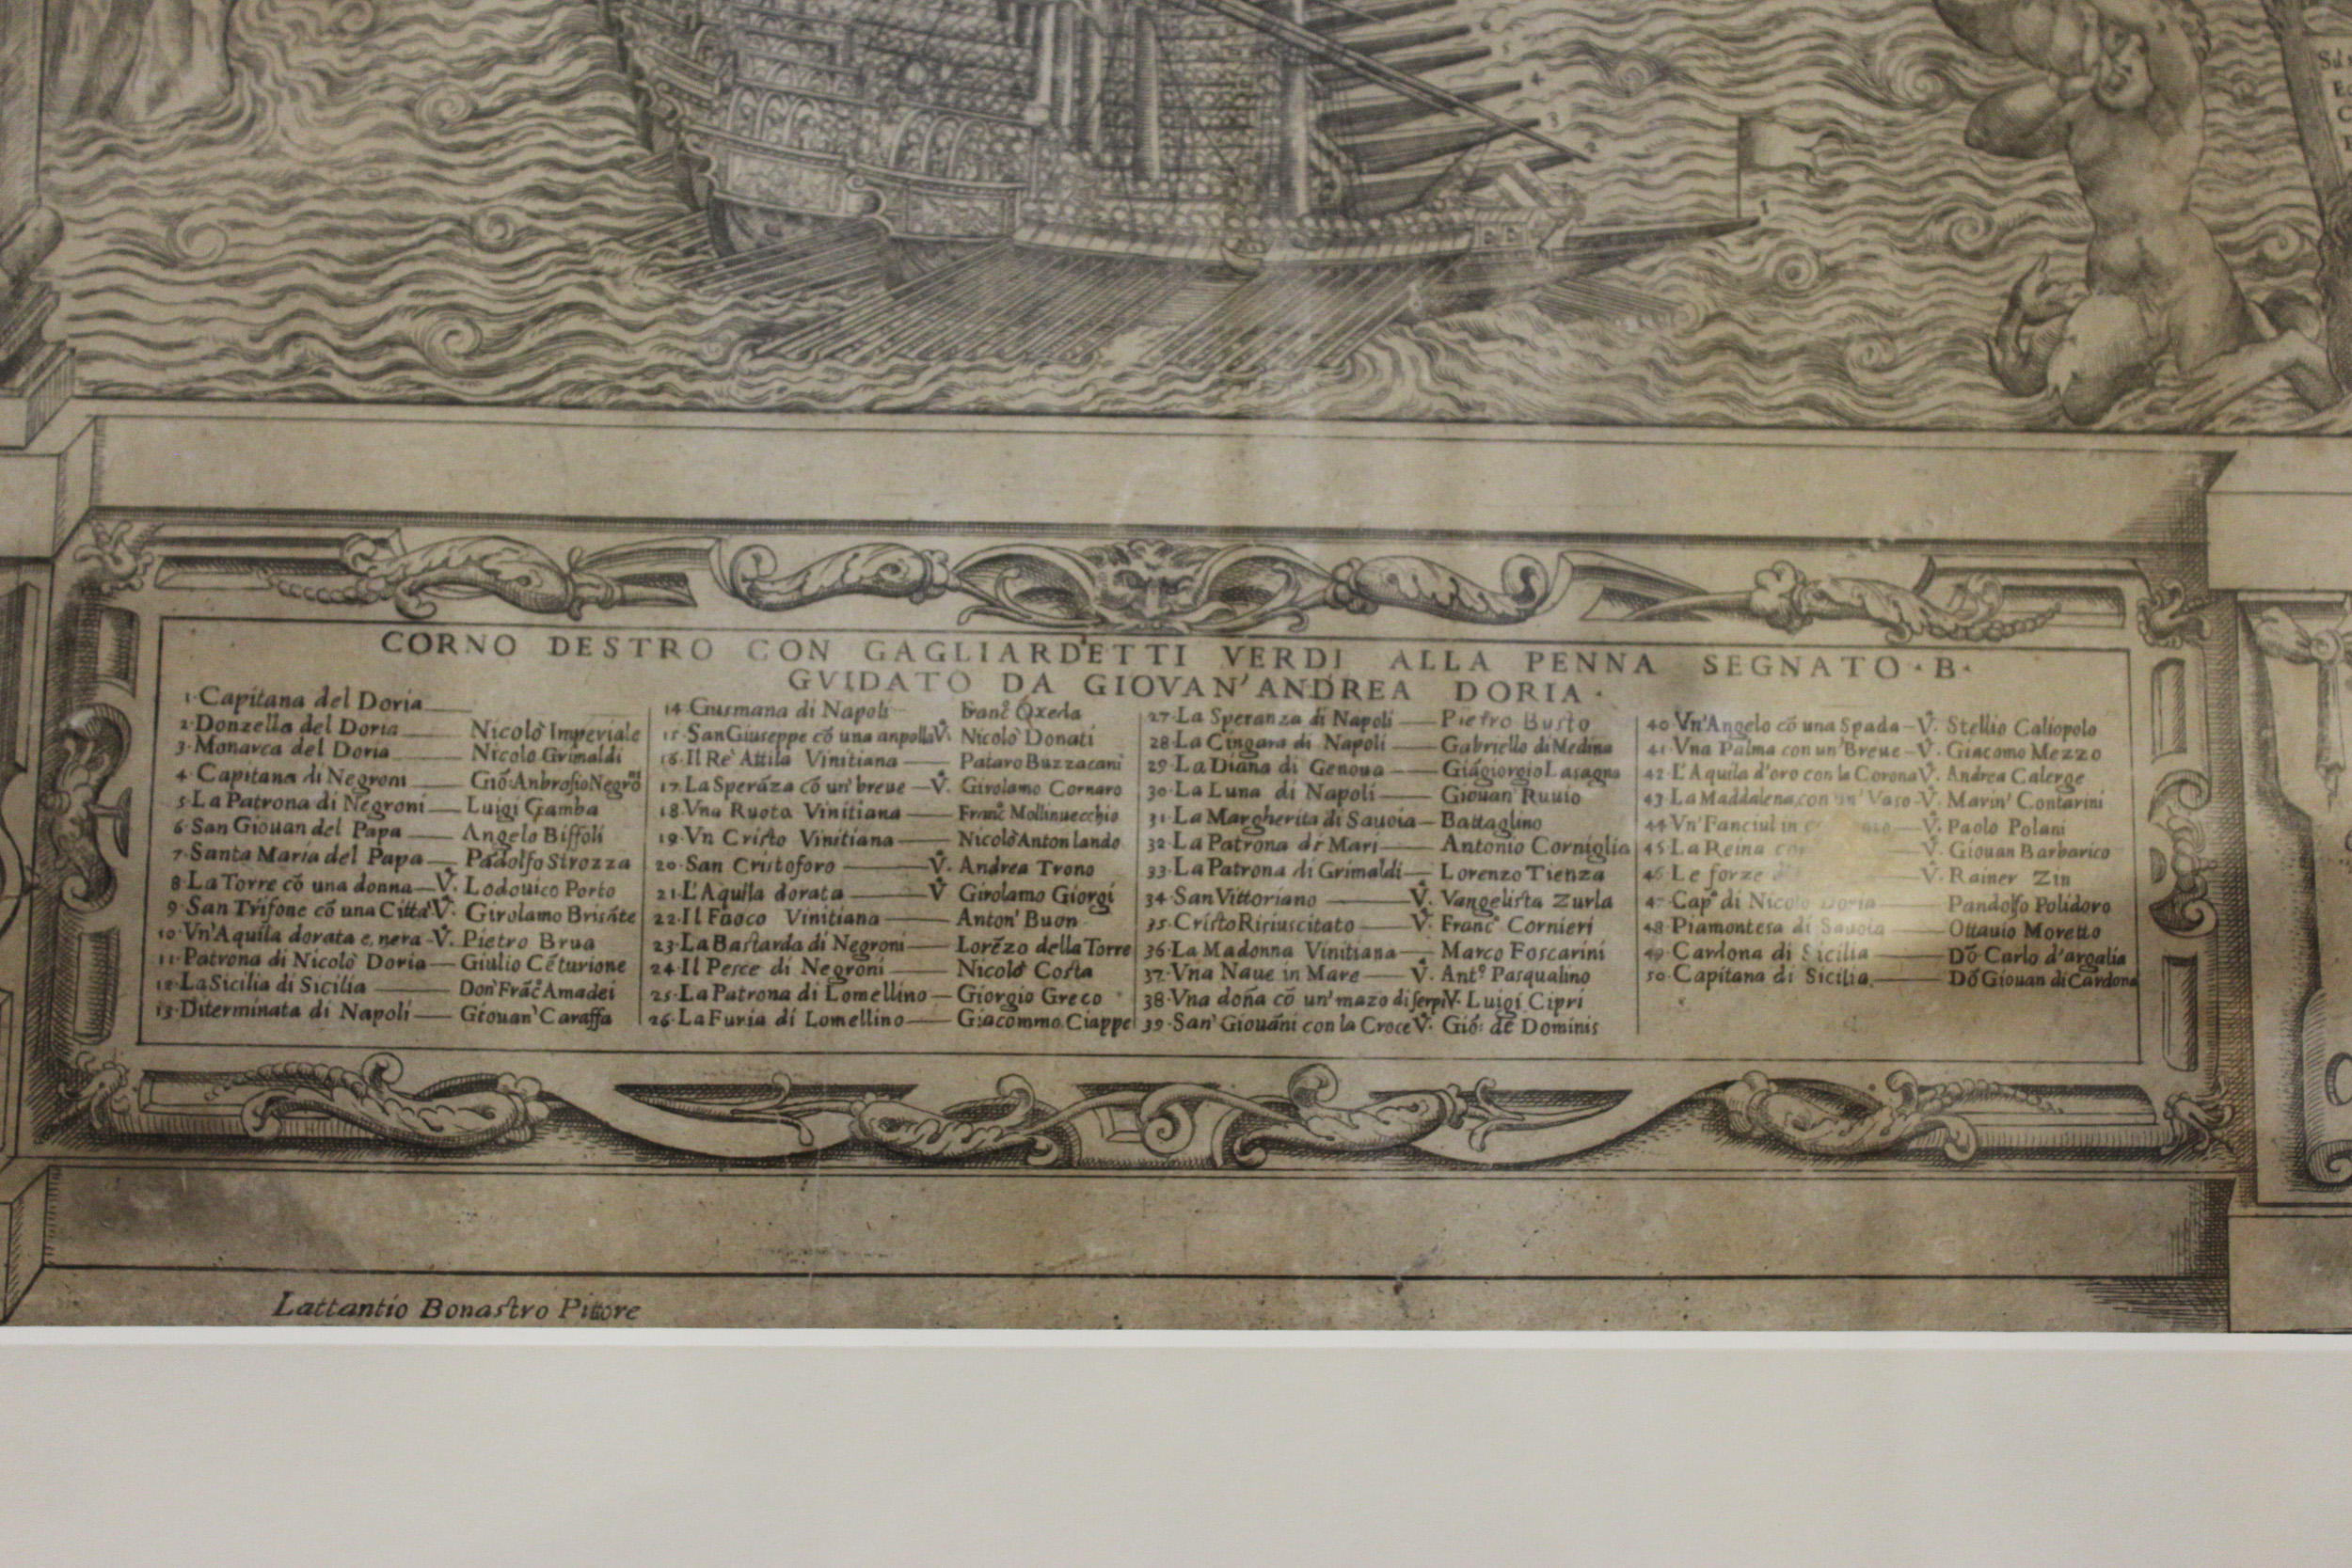 CORNO DESTRO CON GAGLIARDETTI VERDI ALLA PENNA SEGNATO · B ·
GVIDATO DA GIOVAN' ANDREA DORIA ·
1 · Capitana del Doria
2 · Donzella del Doria Nicolò Imperiale
3 · Monarca del Doria Nicolo Grimaldi
4 · Capitana di Negroni Gió: Anbrosio Negrō
5 · La Patrona di Negroni Luigi Gamba
6 · San Giouan del Papa Angelo Biffoli
7 · Santa Maria del Papa Pādolfo Strozza
8 · La Torre cō una donna V. Lodouico Porto
9 · San Trifone cō una Citta' V. Girolamo Brisāte
10 · Vn'Aquila dorata e, nera V. Pietro Brua
11 · Patrona di Nicolò Doria Giulio Cēturione
12 · La Sicilia di Sicilia Don' Frāc.º Amadei
13 · Diterminata di Napoli Giouan' Caraffa
14 · Gusmana di Napoli Franc.º Oxeda
15 · San Giuseppe cō una anpolla V. Nicolò Donati
16 · Il Re Attila Vinitiana Pataro Buzzacani
17 · La Sperāza cō un' breue V. Girolamo Cornaro
18 · Vna Ruota Vinitiana Franc.º Mollinuecchio
19 · Vn Cristo Vinitiana Nicolò Anton lando
20 · San Cristoforo V. Andrea Trono
21 · L'Aquila dorata V Girolamo Giorgi
22 · Il Faoco Vinitiana Anton' Buon
23 · La Bastarda di Negroni Lorēzo della Torre
24 · Il Pesce di Negroni Nicolò Costa
25 · La Patrona di Lomellino Giorgio Greco
26 · La Furia di Lomellino Giacommo Ciappe
27 · La Speranza di Napoli Pietro Busto
28 · La Cingara di Napoli Gabriello di Medina
29 · La Diana di Genoua Giāgiorgio Lasagna
30 · La Luna di Napoli Giouan Ruuio
31 · La Margherita di Sauoia Battaglino
32 · La Patrona di Mari Antonio Corniglia
33 · La Patrona di Grimaldi Lorenzo Tienza
34 · San Vittoriano V. Vangelista Zurla
35 · CristoRiriuscitato V. Franc.º Cornieri
36 · La Madonna Vinitiana Marco Foscarini
37 · Vna Naue in Mare V. Ant.º Pasqualino
38 · Vna doña cō un' mazo di serpi V. Luigi Cipri
39 · San' Giouāni con la Croce V. Gió: de Dominis
40 Vn'Angelo cō una Spada V. Stellio Caliopolo
41 · Vna Palma con un' Breue V. Giacomo Mezzo
42 · L'Aquila d'oro con la Corona V. Andrea Calerge
43 · La Maddalena, con un' Vaso V. Marin' Contarini
44 Vn' Fanciul in V. Paolo Polani
45 La Reina V. Giouan Barbarico
46 · Le forze V. Rainer Zin
47 · Cap.ª di Nicolo Doria Pandolfo Polidoro
48 · Piamontesa di Sauoia Ottauio Moretto
49 · Cardona di Sicilia Dō Carlo d'argalia
50 · Capitana di Sicilia. Dō Giouan di Cardona
Lattantio Bonastro Pittore